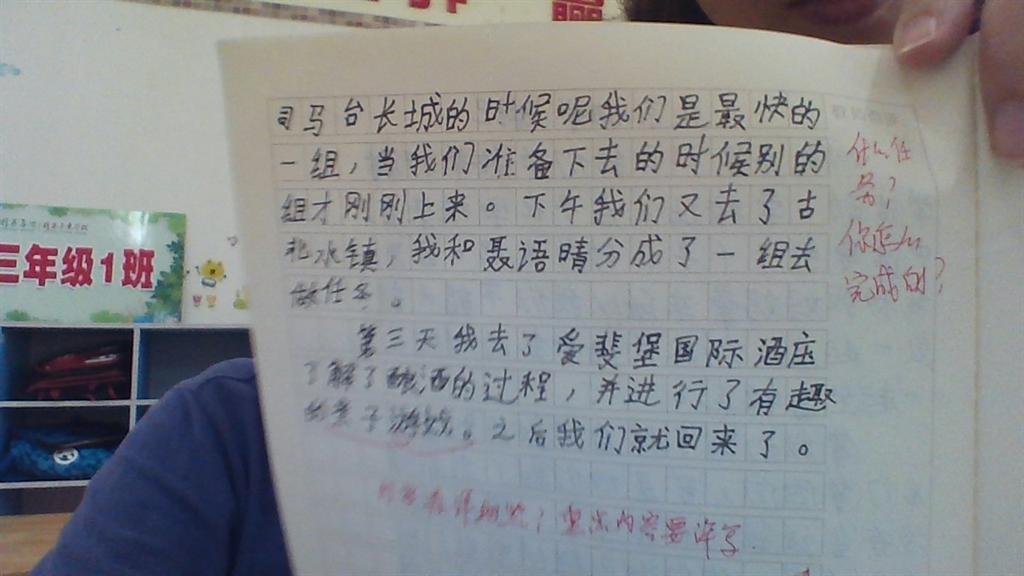 三年级1班
司马台长城的时候呢我们是最快的
一组，当我们准备下去的时候别的
组才刚刚上来。下午我们又去了古
北水镇，我和聂语晴分成了一组去
做任务。
第三天我去了爱斐堡国际酒庄
了解了酿酒的过程，并进行了有趣
的亲子游戏。之后我们就回来了。
什么任
务？
你怎么
完成的？
内容要详写